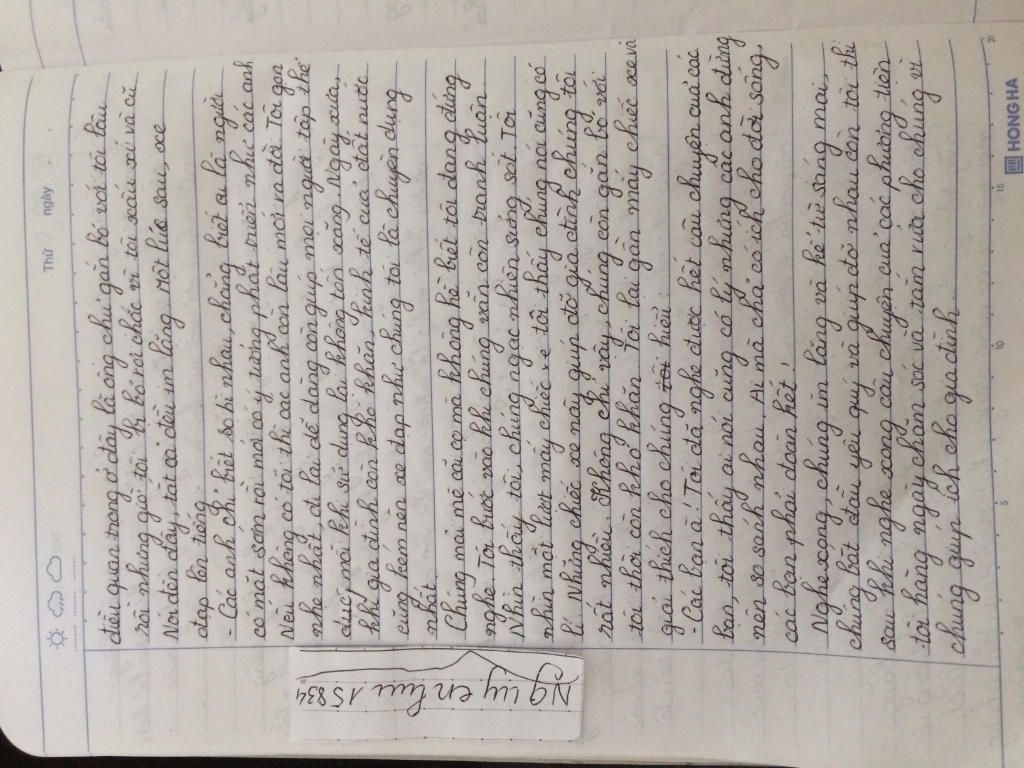 Thứ ngày
điều quan trọng ở đây là ông chủ gắn bó với tôi lâu
rồi nhưng giờ tôi bị bỏ rơi chắc vì tôi xấu xí và cũ
Nói đến đây, tất cả đều im lặng. Một lúc sau, xe
đạp lên tiếng
- Các anh chỉ biết so bì nhau, chẳng biết ai là người
có mặt sớm rồi mới có ý tưởng phát triển như các anh
Nếu không có tôi thì các anh còn lâu mới ra đời. Tôi gọn
nhẹ nhất, đi lại dễ dàng còn giúp mọi người tập thể
dục, mỗi khi sử dụng lại không tốn xăng. Ngày xưa,
khi gia đình còn khó khăn, kinh tế của đất nước
cũng kém nên xe đạp như chúng tôi là chuyên dụng
nhất.
Chúng mải mê cãi cọ mà không hề biết tôi đang đứng
nghe. Tôi bước vào khi chúng vẫn còn tranh luận.
Nhìn thấy tôi, chúng ngạc nhiên sửng sốt. Tôi
nhìn một lượt mấy chiếc xe tôi thấy chúng nói cũng có
lí. Những chiếc xe này giúp đỡ gia đình chúng tôi
rất nhiều. Không chỉ vậy, chúng còn gắn bó với
tôi thời còn khó khăn. Tôi lại gần mấy chiếc xe và
giải thích cho chúng hiểu.
- Các bạn à! Tôi đã nghe được hết câu chuyện của các
bạn, tôi thấy ai nói cũng có lý nhưng các anh đừng
nên so sánh nhau. Ai mà chả có ích cho đời sống,
các bạn phải đoàn kết.
Nghe xong, chúng im lặng và kể từ sáng mai,
chúng bắt đầu yêu quý và giúp đỡ nhau còn tôi thì
sau khi nghe xong câu chuyện của các phương tiện
tôi hằng ngày chăm sóc và tắm rửa cho chúng vì
chúng giúp ích cho gia đình.
HONG HA
5
10
15
20
Nguyenluu 15834